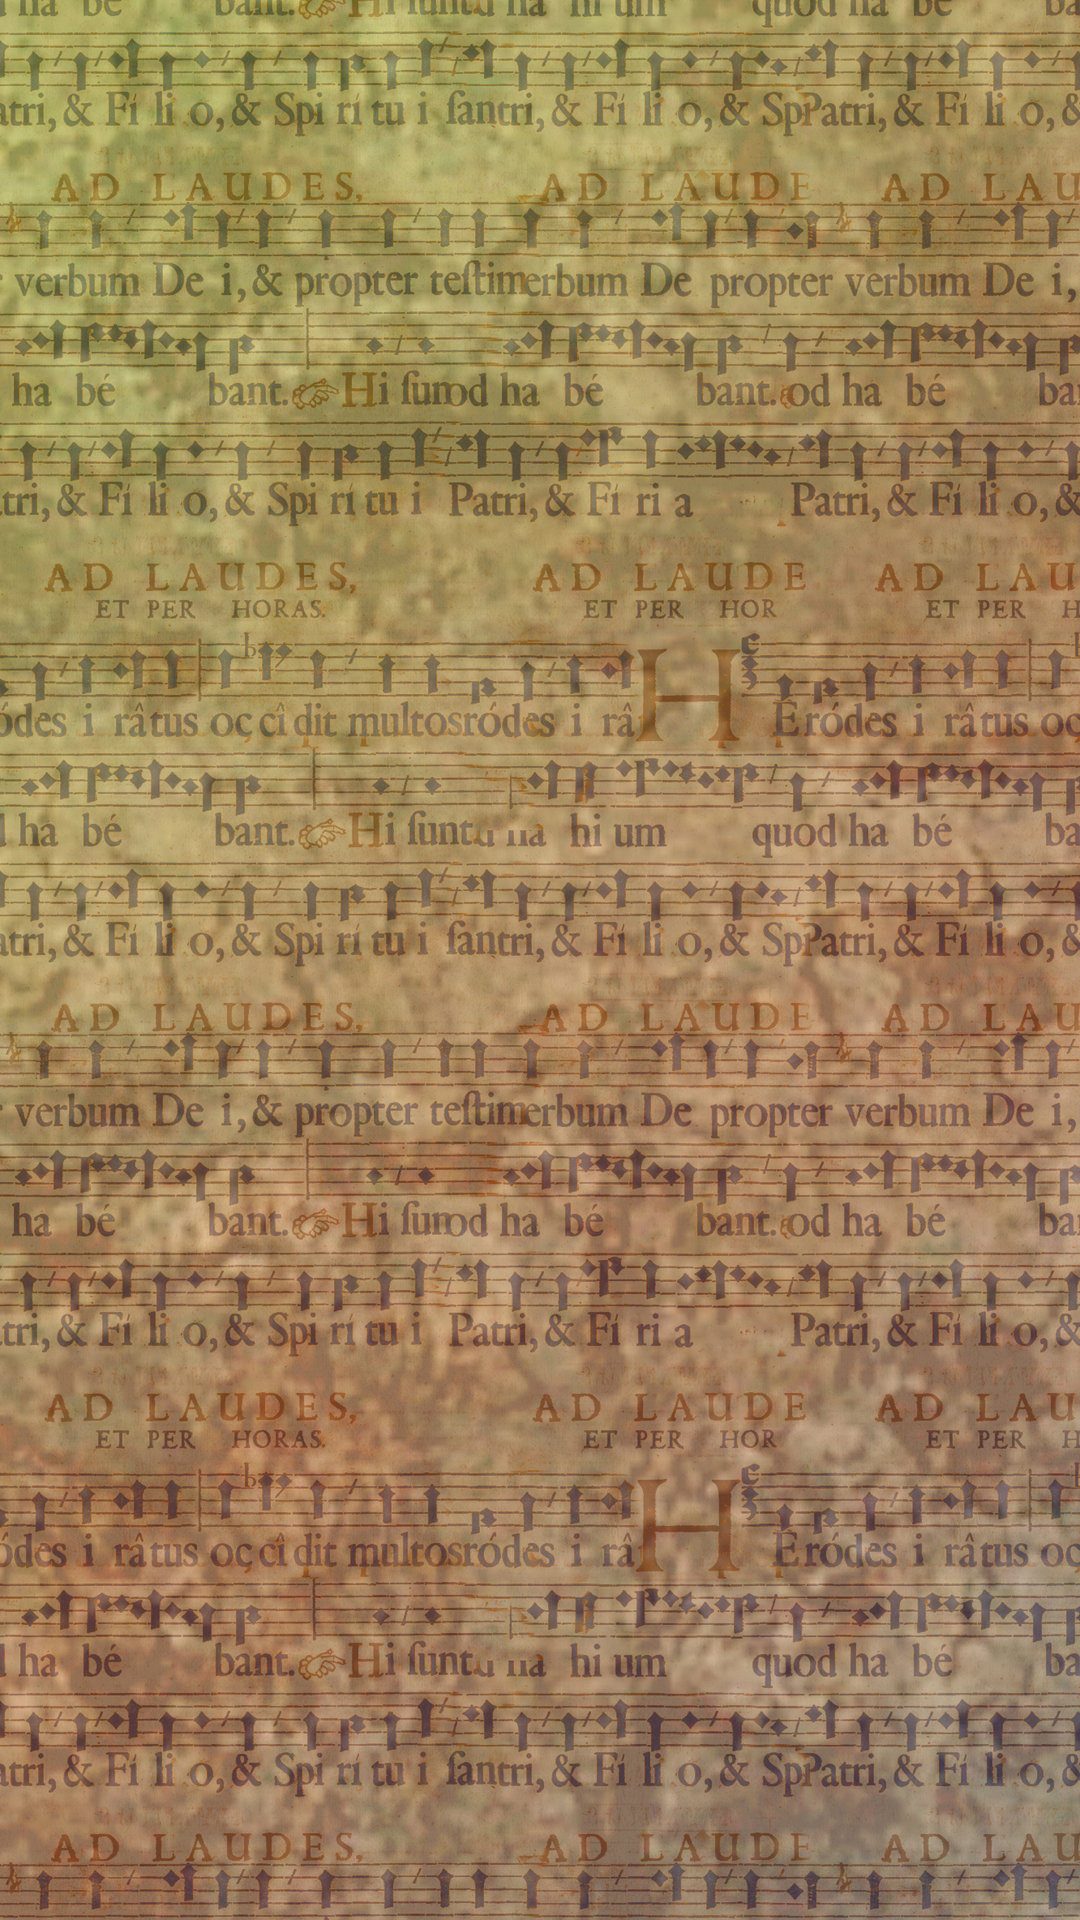 ha bé bant. Hi sunt ha hi um quod ha bé
atri, & Fí li o, & Spi rí tu i ſantri, & Fí li o, & SpPatri, & Fí li o, &
AD LAUDES, AD LAUDE AD LAU
verbum De i, & propter teſtimerbum De propter verbum De i,
ha bé bant. ☞ Hi ſunod ha bé bant. od ha bé ba
tri, & Fí li o, & Spi rí tu i Patri, & Fí ri a Patri, & Fí li o, &
AD LAUDES, AD LAUDE AD LAU
ET PER HORAS. ET PER HOR ET PER H
ódes i râtus oç cî dit multosródes i râ H Eródes i râtus oç
ha bé bant. ☞ Hi ſunt hi um quod ha bé ba
atri, & Fí li o, & Spi rí tu i ſantri, & Fí li o, & SpPatri, & Fí li o, &
AD LAUDES, AD LAUDE AD LAU
verbum De i, & propter teſtimerbum De propter verbum De i,
ha bé bant. ☞ Hi ſunod ha bé bant. od ha bé ba
tri, & Fí li o, & Spi rí tu i Patri, & Fí ri a Patri, & Fí li o, &
AD LAUDES, AD LAUDE AD LAU
ET PER HORAS. ET PER HOR ET PER H
ódes i râtus oç cî dit multosródes i râ H Eródes i râtus oç
ha bé bant. ☞ Hi ſunt hi um quod ha bé ba
atri, & Fí li o, & Spi rí tu i ſantri, & Fí li o, & SpPatri, & Fí li o, &
AD LAUDES, AD LAUDE AD LAU